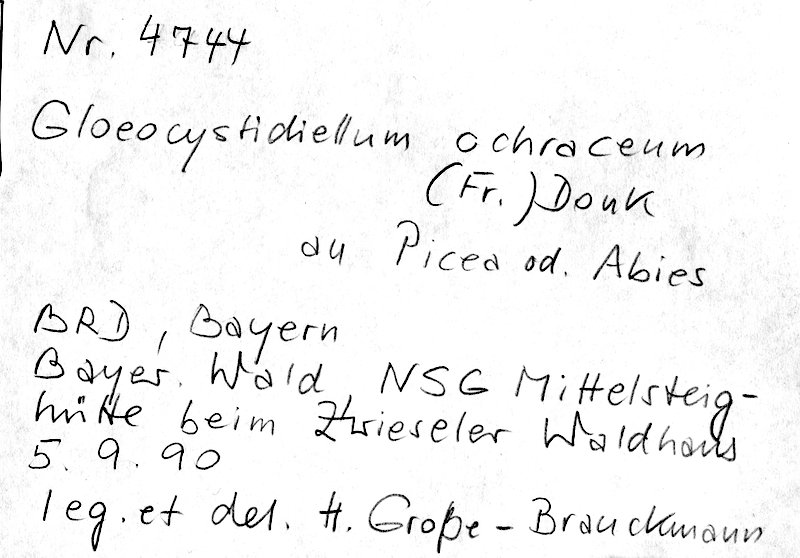 Nr. 4744
Gloeocystidiellum ochraceum
(Fr.) Donk
an Picea od. Abies
BRD, Bayern
Bayer. Wald, NSG Mittelsteig-
hütte beim Zwieseler Waldhaus
5. 9. 90
leg. et det. H. Große-Brauckmann